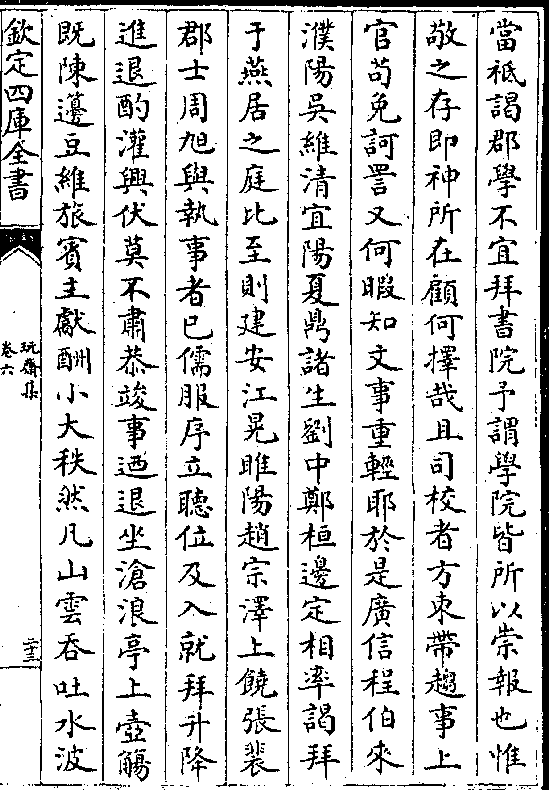 當祗謁郡學不宜拜書院予謂學院皆所以崇報也惟
敬之存即神所在顧何擇哉且司校者方束帶趨事上
官苟免訶詈又何暇知文事重輕耶於是廣信程伯來
濮陽吳維清宜陽夏鼎諸生劉中鄭桓邊定相率謁拜
于燕居之庭比至則建安江晃睢陽趙宗澤上饒張裴
郡士周旭與執事者已儒服序立聽位及入就拜升降
進退酌灌興伏莫不肅恭竣事迺退坐滄浪亭上壺觴
既陳籩豆維旅賓主獻酬小大秩然凡山雲吞吐水波
欽定四庫全書
玩齋集
卷六
二十三